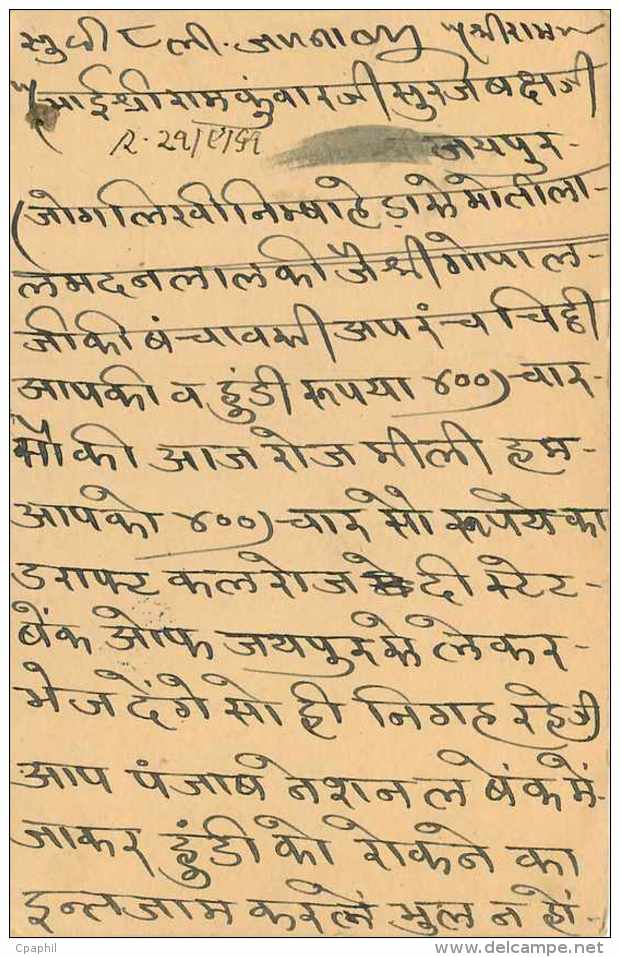 सुदी ८ ली. श्रीराम
भाई श्री रामकुंवारजी सुरजबक्षजी
जयपुर -
जोग लिखी निम्बाहेड़ा से मोतीला-
ल मदनलाल की जै श्री गोपाल-
जी की बंचावसी अपरंच चिठ्ठी
आपकी व हुंडी रूपया ४००) चार-
सौ की आज रोज मीली हम-
आपको ४००) चार सो रूपेये का
डराफ्ट कल रोज दी स्टेट-
बेंक ओफ जयपुर से लेकर-
भेज देंगे सो ही निगह रहेजी
आप पंजाब नेशनल बेंक में-
जाकर हुंडी को रोकने का
इन्तजाम करलें भुल न हों-
Cpaphil
www.delcampe.net